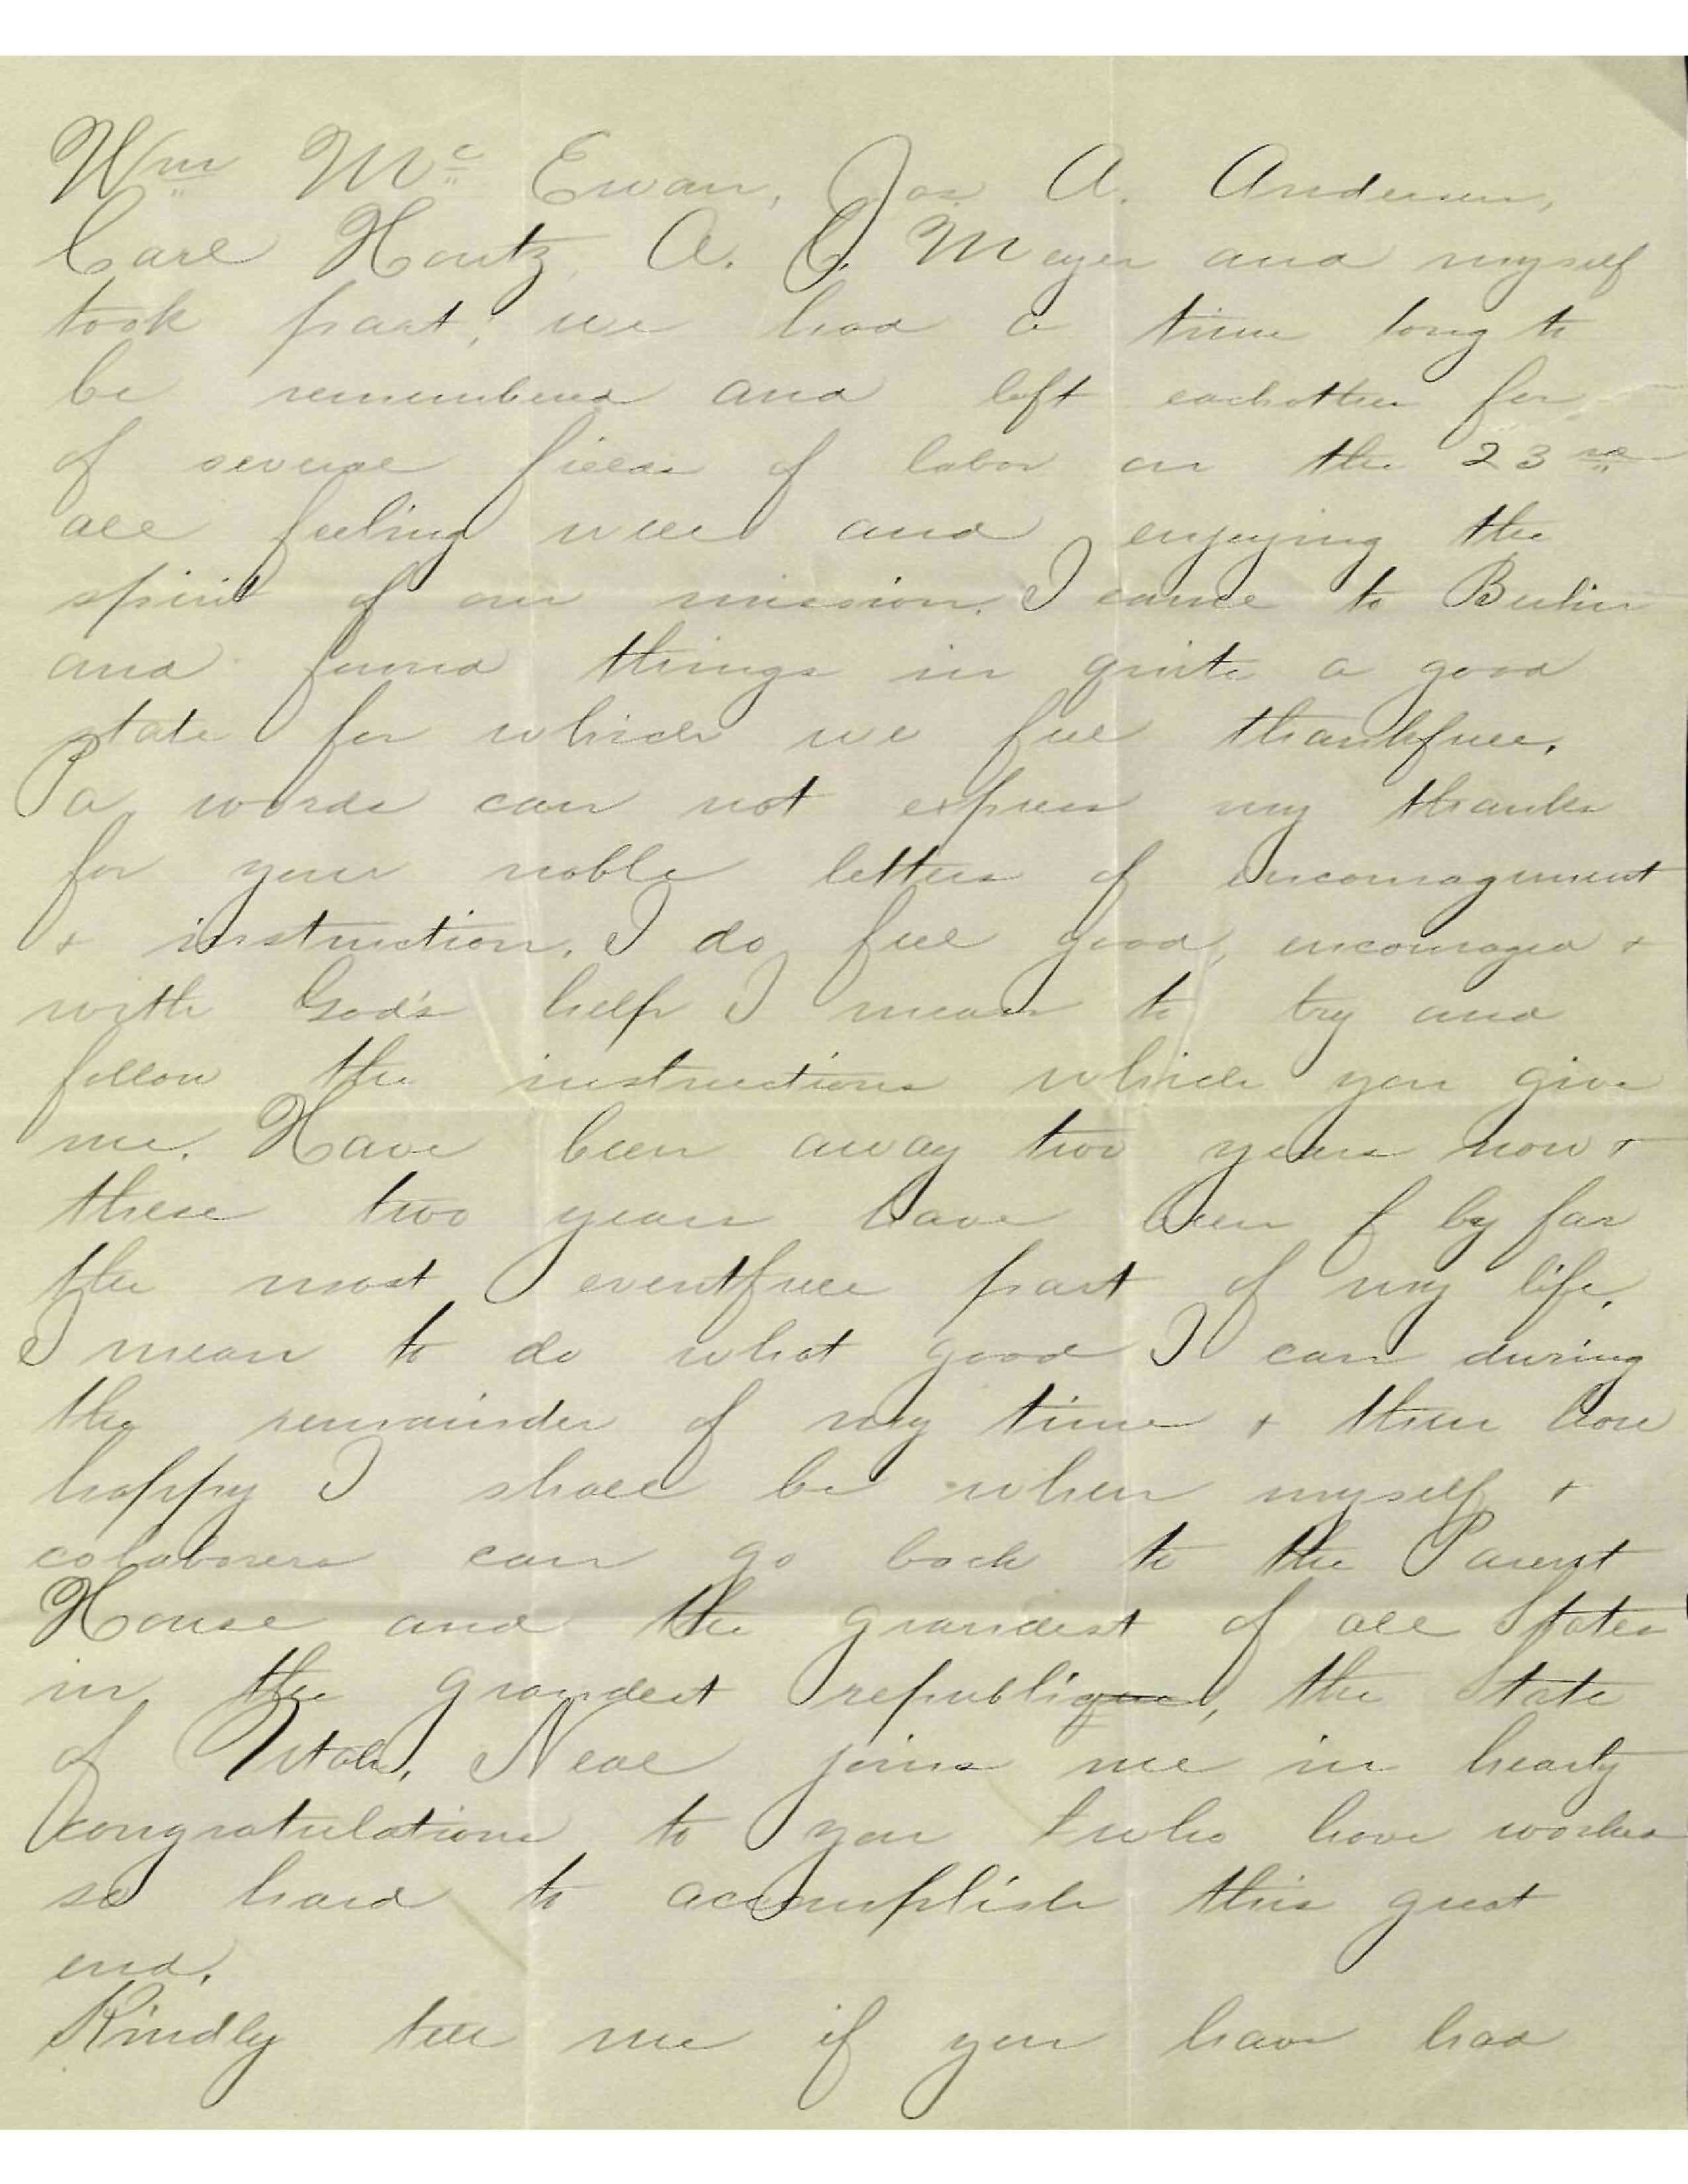 Wm Mc Ewan, Jos. A. Andersen,
Carl Hontz, A. C. Meyer and myself
took part, we had a time long to
be remembered and left eachother for
of several fields of labor on the 23rd
all feeling well and enjoying the
spirit of our mission. I came to Berlin
and found things in quite a good
state for which we feel thankfull.
Pa, words can not express my thanks
for your noble letters of encouragment
+ instruction. I do feel good, encouraged +
with God's help I mean to try and
follow the instructions which you give
me. Have been away two years now +
these two years have been f by far
the most eventfull part of my life.
I mean to do what good I can during
the remainder of my time + then how
happy I shall be when myself +
colaborers can go back to the Parent
House and the grandest of all States
in the grandest republique, the State
of Utah. Neal joins me in hearty
congratulations to you t who have worked
so hard to accomplish this great
end.
Kindly tell me if you have had